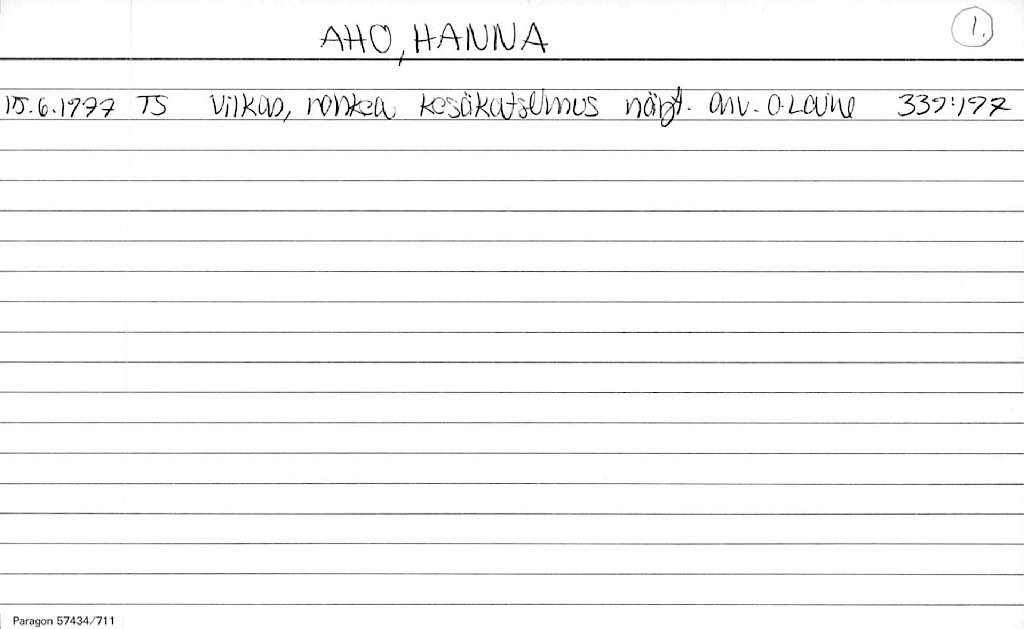 AHO, HANNA
1.
15.6.1977 TS Vilkas, rohkea kesäkatselmus näyt. arv. O.Laine 339:197
Paragon 57434/711